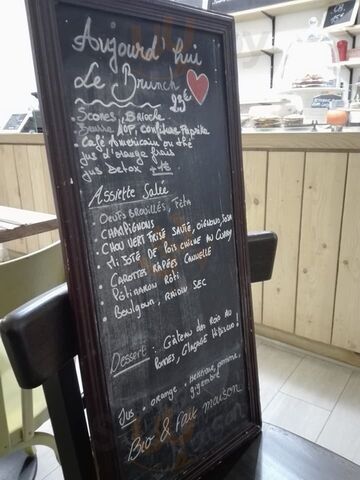 Aujourd'hui
Le Brunch
22€
Scones, Brioche
Beurre AOP, confiture Paprika
• Café Américain ou thé
jus d'orange frais
jus Detox +1€
Assiette Salée
• Oeufs brouillés, Feta
• Champignons
• Chou vert frisé sauté, oignons, soja
• Mijoté de pois chiche au curry
• Carottes rapées cannelle
• Potimaron rôti
• Boulgour, raisin sec
Dessert : Gâteau des rois aux
Pommes, Glaçage Hibiscus.
Jus • orange • betterave, pomme,
gingembre
Bio & fait maison